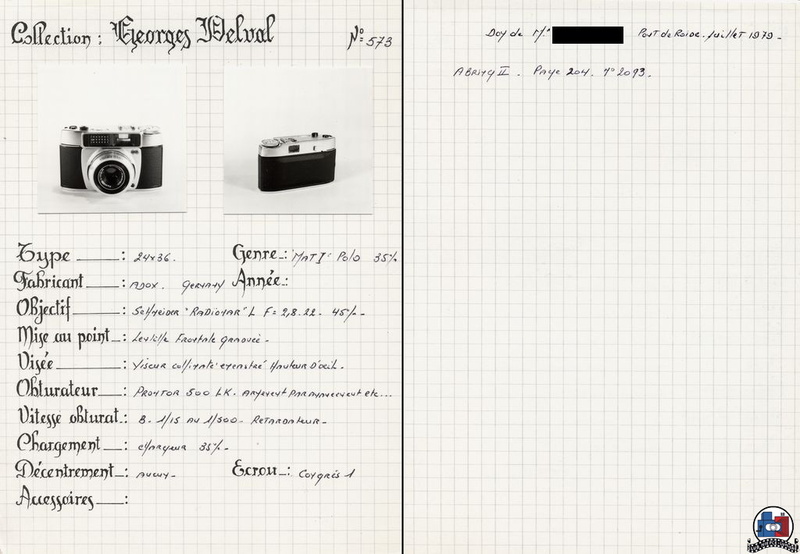 Collection : Georges Delval
N° 573
Type : 24x36.
Genre : "MAT I" Polo 35%
Fabricant : ADOX. Germany
Année :
Objectif : Schneider "Radionar" L F= 2,8.22. 45%-
Mise au point : Lentille Frontale
Visée : Viseur collimaté Hauteur D'oeil.
Obturateur : Prontor 500 LK. etc...
Vitesse obturat. : B. 1/15 au 1/500 - Retardateur -
Chargement : chargeur 35%-
Décentrement : aucun -
Ecrou : Congrès 1
Accessoires :
Don de Mr Pont de Roide. Juillet 1979 -
Abring II. Page 204. N° 2093.